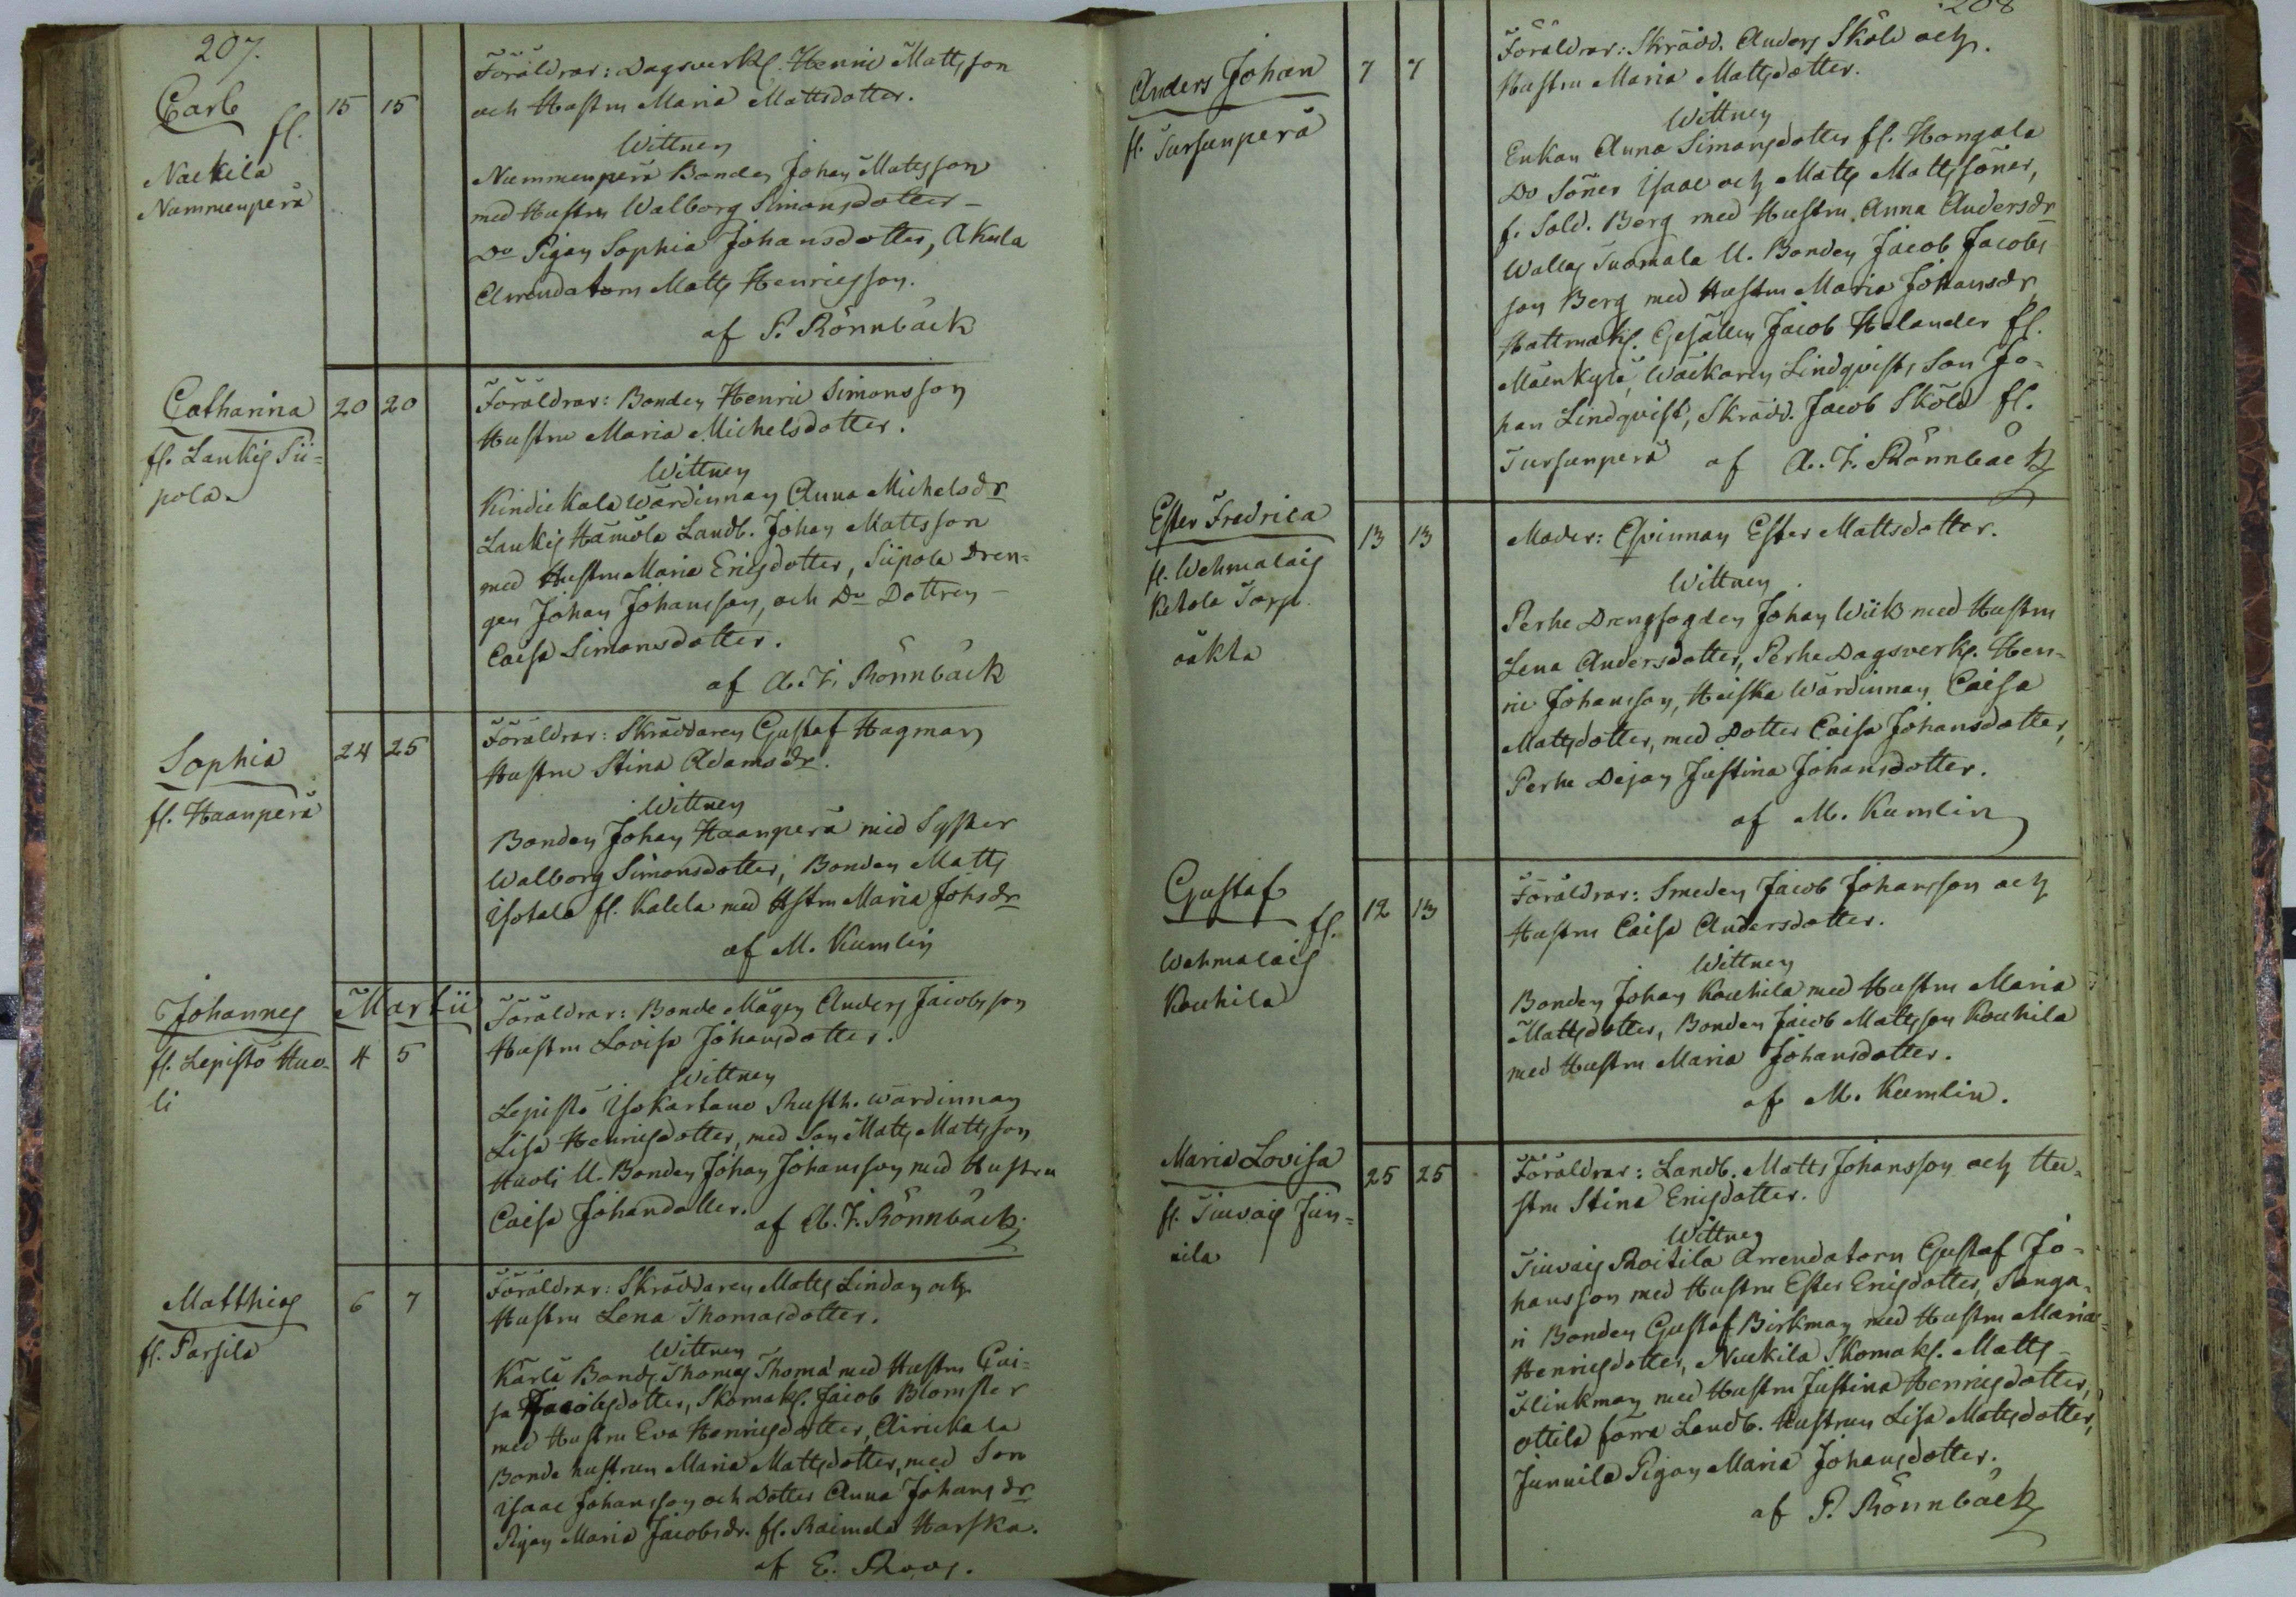 207.
Carl
fl.
Naekila
Nummenperä
15 15
Föräldrar: Dagsverkf. Henric Mattsson
och Hustru Maria Mattsdotter.
Wittnen
Nummenperä Bonden Johan Mattsson
med Hustru Walborg Simonsdotter
Do Pigan Sophia Johansdotter, Akula
Arrendatorn Matts Henricsson.
af P. Rönnbäck
Catharina
fl. Laukis Sii=
pola.
20 20
Föräldrar: Bonden Henric Simonsson
Hustru Maria Michelsdotter.
Wittnen
Kindickala Wärdinnan Anna Michelsdr
Laukis Hämölä Landb. Johan Mattsson
med Hustru Maria Ericsdotter, Siipola Dren=
gen Johan Johansson, och Do Dottren
Caisa Simonsdotter.
af A. F. Rönnbäck
Sophia
fl. Haanperä
24 25
Föräldrar: Skräddaren Gustaf Hagman
Hustru Stina Adamsdr.
Wittnen
Bonden Johan Haanperä med Syster
Walborg Simonsdotter, Bonden Matts
Isotalo fl. Kalela med Hstru Maria Johsdr
af M. Kumlin
Johannes
fl. Lepistö Huo-
li
Martii
4 5
Föräldrar: Bonde Mågen Anders Jacobsson
Hustru Lovisa Johansdotter.
Wittnen
Lepistö Isokartano Rusth. wärdinnan
Lisa Henricsdotter, med Son Matts Mattsson
Huoli U. Bonden Johan Johansson med Hustru
Caisa Johandotter. af A. F. Rönnbäck.
Matthias
fl. Parsila
6 7
Föräldrar: Skräddaren Matts Lindan och
Hustru Lena Thomasdotter.
Wittnen
Kärlä Bond. Thomas Thoma med Hustru Cai=
sa Jacobsdotter, Skomakf. Jacob Blomster
med Hustru Eva Henricsdotter, Airickala
Bonde hustrun Maria Mattsdotter, med Son
Isaac Johansson och Dotter Anna Johansdr
Pigan Maria Jacobsdr. fl. Raimela Harska.
af E. Roos.
208
Anders Johan
fl. Tursunperä
7 7
Föräldrar: Skrädd. Anders Sköld och
Hustru Maria Mattsdotter.
Wittnen
Enkan Anna Simonsdotter fl. Hongola
Do Söner Isaac och Matts Mattssöner,
f. Sold. Berg med Hustru Anna Andersdr
Wallas Tuomala U. Bonden Jacob Jacobs
son Berg med Hustru Maria Johansdr
Hattmakf. Gesällen Jacob Helander fl.
Mäenkylä, Wäckaren Lindqvists Son Jo=
han Lindqvist, Skrädd. Jacob Sköld fl.
Tursunperä af A. F. Rönnbäck
Ester Fredrica
fl. Wehmalais
Ketola Torp.
oäkta
13 13
Moder: Qvinnan Ester Mattsdotter.
Wittnen.
Perhe Drengfogden Johan Wiik med Hustru
Lena Andersdotter, Perhe Dagsverkf. Hen=
ric Johansson, Heiska Wärdinnan Caisa
Mattsdotter, med Dotter Caisa Johansdotter,
Perhe Dejan Justina Johansdotter.
af M. Kumlin
Gustaf
fl.
Wehmalais
Kouhila
12 13
Föräldrar: Smeden Jacob Johansson och
Hustru Caisa Andersdotter.
Wittnen
Bonden Johan Kouhila med Hustru Maria
Mattsdotter, Bonden Jacob Mattsson Kouhila
med Hustru Maria Johansdotter.
af M. Kumlin.
Maria Lovisa
fl. Tiuvais Jun=
nila
25 25
Föräldrar: Landb. Matts Johansson och Hu=
stru Stina Ericsdotter.
Wittnen
Tiuvais Roitila Arrendatorn Gustaf Jo=
hansson med Hustru Ester Ericsdotter, Sanga=
ri Bonden Gustaf Birkman med Hustru Maria
Henricsdotter, Nuckila Skomakf. Matts
Flinkman med Hustru Justina Henricsdotter,
Ottila förra Landb. Hustrun Lisa Mattsdotter,
Junnila Pigan Maria Johansdotter.
af P. Rönnbäck